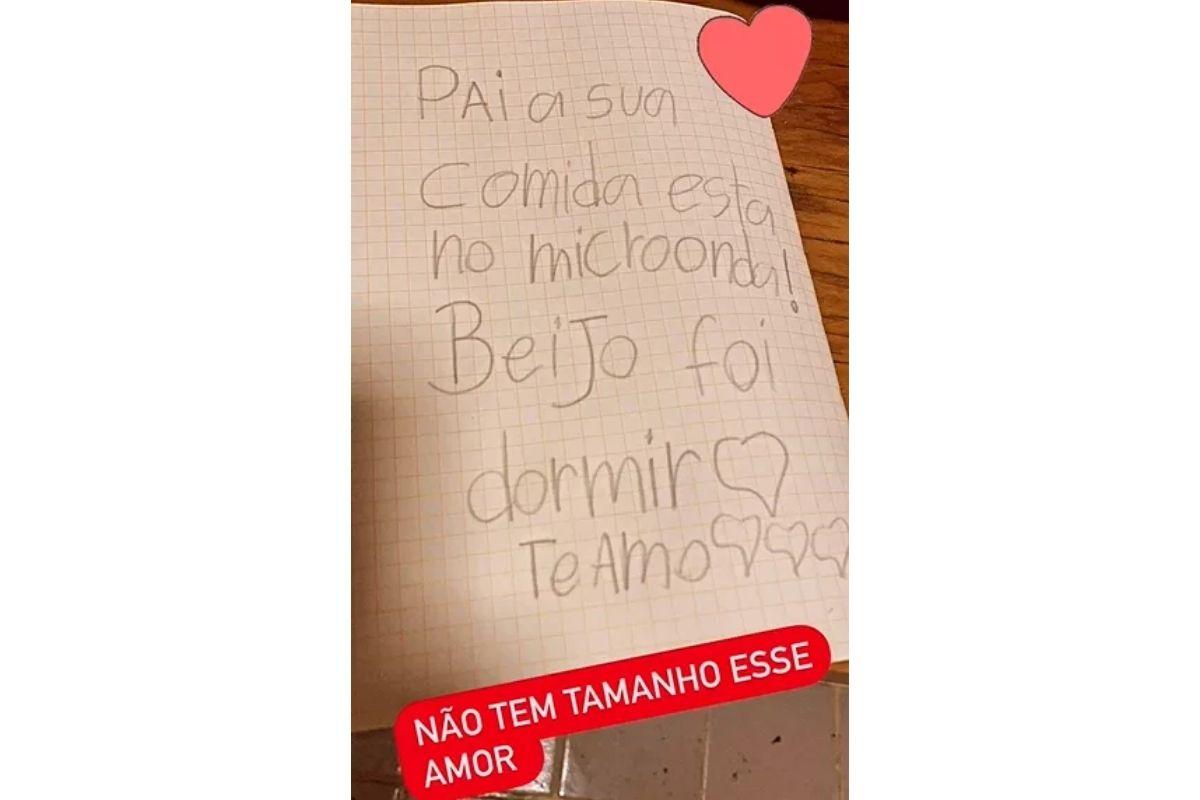 PAi a sua
comida esta
no microonda!
BeiJo foi
dormir
Te AMo
NÃO TEM TAMANHO ESSE
AMOR